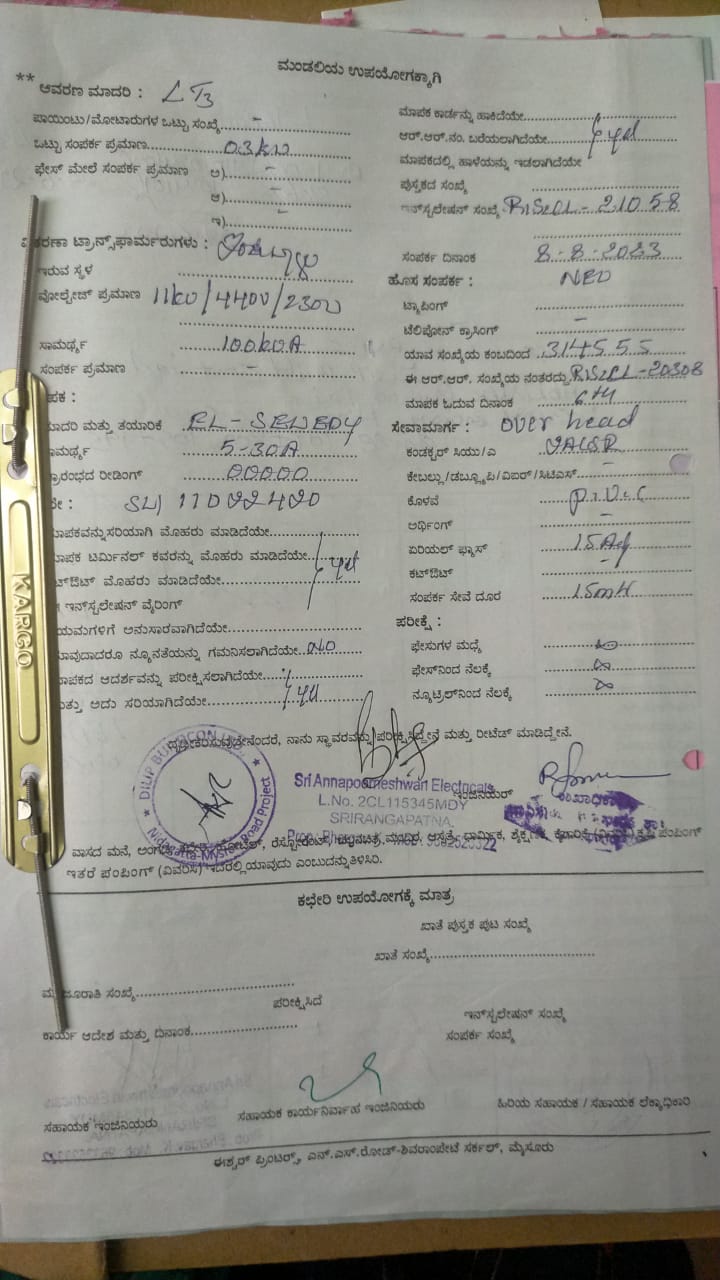 ಮಂಡಲಿಯ ಉಪಯೋಗಕ್ಕಾಗಿ
** ಆವರಣ ಮಾದರಿ : LT3
ಪಾಯಿಂಟು/ಮೋಟಾರುಗಳ ಒಟ್ಟು ಸಂಖ್ಯೆ -
ಒಟ್ಟು ಸಂಪರ್ಕ ಪ್ರಮಾಣ 03kW
ಫೇಸ್ ಮೇಲೆ ಸಂಪರ್ಕ ಪ್ರಮಾಣ ಅ) -
ಆ) -
ಇ)
ವಿತರಣಾ ಟ್ರಾನ್ಸ್‌ಫಾರ್ಮರುಗಳು :
ಇರುವ ಸ್ಥಳ
ವೋಲ್ಟೇಜ್ ಪ್ರಮಾಣ 11kv/440v/230v
ಸಾಮರ್ಥ್ಯ 100kVA
ಸಂಪರ್ಕ ಪ್ರಮಾಣ -
ಪಕ :
ಮಾದರಿ ಮತ್ತು ತಯಾರಿಕೆ
ಸಾಮರ್ಥ್ಯ 5-30A
ಪ್ರಾರಂಭದ ರೀಡಿಂಗ್ 00000
ಮಾಪಕವನ್ನು ಸರಿಯಾಗಿ ಮೊಹರು ಮಾಡಿದೆಯೇ
ಮಾಪಕ ಟರ್ಮಿನಲ್ ಕವರನ್ನು ಮೊಹರು ಮಾಡಿದೆಯೇ yes
ಕಟ್‌ಔಟ್ ಮೊಹರು ಮಾಡಿದೆಯೇ
ಇನ್‌ಸ್ಟಲೇಷನ್ ವೈರಿಂಗ್
ನಿಯಮಗಳಿಗೆ ಅನುಸಾರವಾಗಿದೆಯೇ
ಯಾವುದಾದರೂ ನ್ಯೂನತೆಯನ್ನು ಗಮನಿಸಲಾಗಿದೆಯೇ NO
ಮಾಪಕದ ಆದರ್ಶವನ್ನು ಪರೀಕ್ಷಿಸಲಾಗಿದೆಯೇ
ಮತ್ತು ಅದು ಸರಿಯಾಗಿದೆಯೇ yes
ಮಾಪಕ ಕಾರ್ಡನ್ನು ಹಾಕಿದೆಯೇ
ಆರ್.ಆರ್.ನಂ. ಬರೆಯಲಾಗಿದೆಯೇ yes
ಮಾಪಕದಲ್ಲಿ ಹಾಳೆಯನ್ನು ಇಡಲಾಗಿದೆಯೇ
ಪುಸ್ತಕದ ಸಂಖ್ಯೆ
ಇನ್‌ಸ್ಟಲೇಷನ್ ಸಂಖ್ಯೆ 21058
ಸಂಪರ್ಕ ದಿನಾಂಕ
ಹೊಸ ಸಂಪರ್ಕ :
ಟ್ಯಾಪಿಂಗ್
ಟೆಲಿಪೋನ್ ಕ್ರಾಸಿಂಗ್ -
ಯಾವ ಸಂಖ್ಯೆಯ ಕಂಬದಿಂದ 314555
ಈ ಆರ್.ಆರ್. ಸಂಖ್ಯೆಯ ನಂತರದ್ದು 20308
ಮಾಪಕ ಓದುವ ದಿನಾಂಕ 6th
ಸೇವಾಮಾರ್ಗ : over head
ಕಂಡಕ್ಟರ್ ಸಿಯು/ಎ
ಕೇಬಲ್ಲು/ಡಬ್ಲ್ಯೂಪಿ/ವಿಐಆರ್/ಸಿಟಿಎಸ್ -
ಕೊಳವೆ P.V.C
ಅರ್ಥಿಂಗ್
ಏರಿಯಲ್ ಫ್ಯೂಸ್
ಕಟ್‌ಔಟ್ -
ಸಂಪರ್ಕ ಸೇವೆ ದೂರ
ಪರೀಕ್ಷೆ :
ಫೇಸುಗಳ ಮಧ್ಯೆ ∞
ಫೇಸ್‌ನಿಂದ ನೆಲಕ್ಕೆ ∞
ನ್ಯೂಟ್ರಲ್‌ನಿಂದ ನೆಲಕ್ಕೆ ∞
ದೃಢೀಕರಿಸುವುದೇನೆಂದರೆ, ನಾನು ಸ್ಥಾವರವನ್ನು ಪರೀಕ್ಷಿಸಿದ್ದೇನೆ ಮತ್ತು ರೀಟೆಡ್ ಮಾಡಿದ್ದೇನೆ.
DILIP BUILDCON
Nidagatta-Mysore Road Project
Sri Annapoorneshwari Electricals
L.No. 2CL115345MDY
SRIRANGAPATNA.
ಇಂಜಿನಿಯರ್
ವಾಸದ ಮನೆ, ಅಂಗಡಿ, ಕಛೇರಿ, ಹೋಟೆಲ್, ರೆಸ್ಟೋರೆಂಟ್, ಚಲನಚಿತ್ರ ಮಂದಿರ, ಆಸ್ಪತ್ರೆ, ಧಾರ್ಮಿಕ, ಶೈಕ್ಷಣಿಕ, ಕೈಗಾರಿಕೆ (ವಿವರಿಸಿ) ಕೃಷಿ ಪಂಪಿಂಗ್
ಇತರೆ ಪಂಪಿಂಗ್ (ವಿವರಿಸಿ) ಇದರಲ್ಲಿ ಯಾವುದು ಎಂಬುದನ್ನು ತಿಳಿಸಿರಿ.
ಕಛೇರಿ ಉಪಯೋಗಕ್ಕೆ ಮಾತ್ರ
ಖಾತೆ ಪುಸ್ತಕ ಪುಟ ಸಂಖ್ಯೆ
ಖಾತೆ ಸಂಖ್ಯೆ
ಮಂಜೂರಾತಿ ಸಂಖ್ಯೆ
ಪರೀಕ್ಷಿಸಿದೆ
ಇನ್‌ಸ್ಟಲೇಷನ್ ಸಂಖ್ಯೆ
ಕಾರ್ಯ ಆದೇಶ ಮತ್ತು ದಿನಾಂಕ
ಸಂಪರ್ಕ ಸಂಖ್ಯೆ
ಸಹಾಯಕ ಇಂಜಿನಿಯರು ಸಹಾಯಕ ಕಾರ್ಯನಿರ್ವಾಹ ಇಂಜಿನಿಯರು ಹಿರಿಯ ಸಹಾಯಕ / ಸಹಾಯಕ ಲೆಕ್ಕಾಧಿಕಾರಿ
ಈಶ್ವರ್ ಪ್ರಿಂಟರ್ಸ್, ಎನ್.ಎಸ್.ರೋಡ್-ಶಿವರಾಂಪೇಟೆ ಸರ್ಕಲ್, ಮೈಸೂರು
KARGO